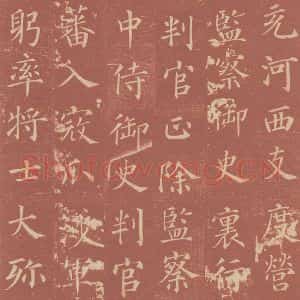 充河西支度營
監察御史裏行
判官正除監察
中侍御史判官
蕃入寇軍
躬率將士大